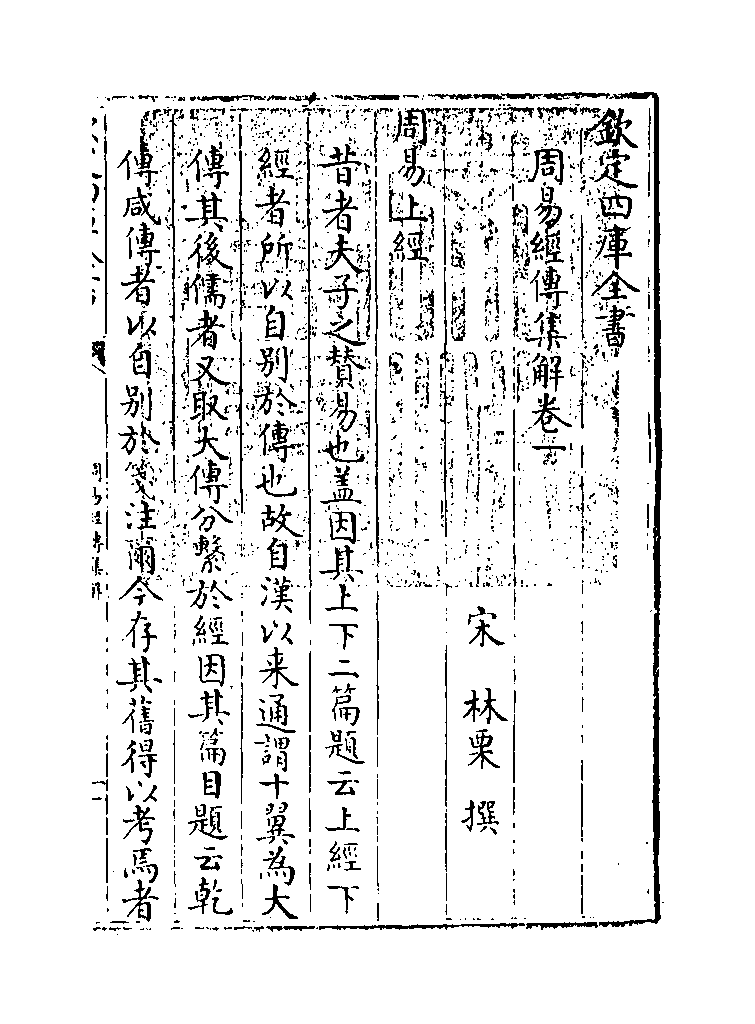 欽定四庫全書
周易經傳集解卷一
宋 林栗 撰
周易上經
昔者夫子之賛易也盖因其上下二篇題云上經下
經者所以自别於傳也故自漢以来通謂十翼為大
傳其後儒者又取大傳分繫於經因其篇目題云乾
傳咸傳者以自别於箋注爾今存其舊得以考焉者
周易經傳集解